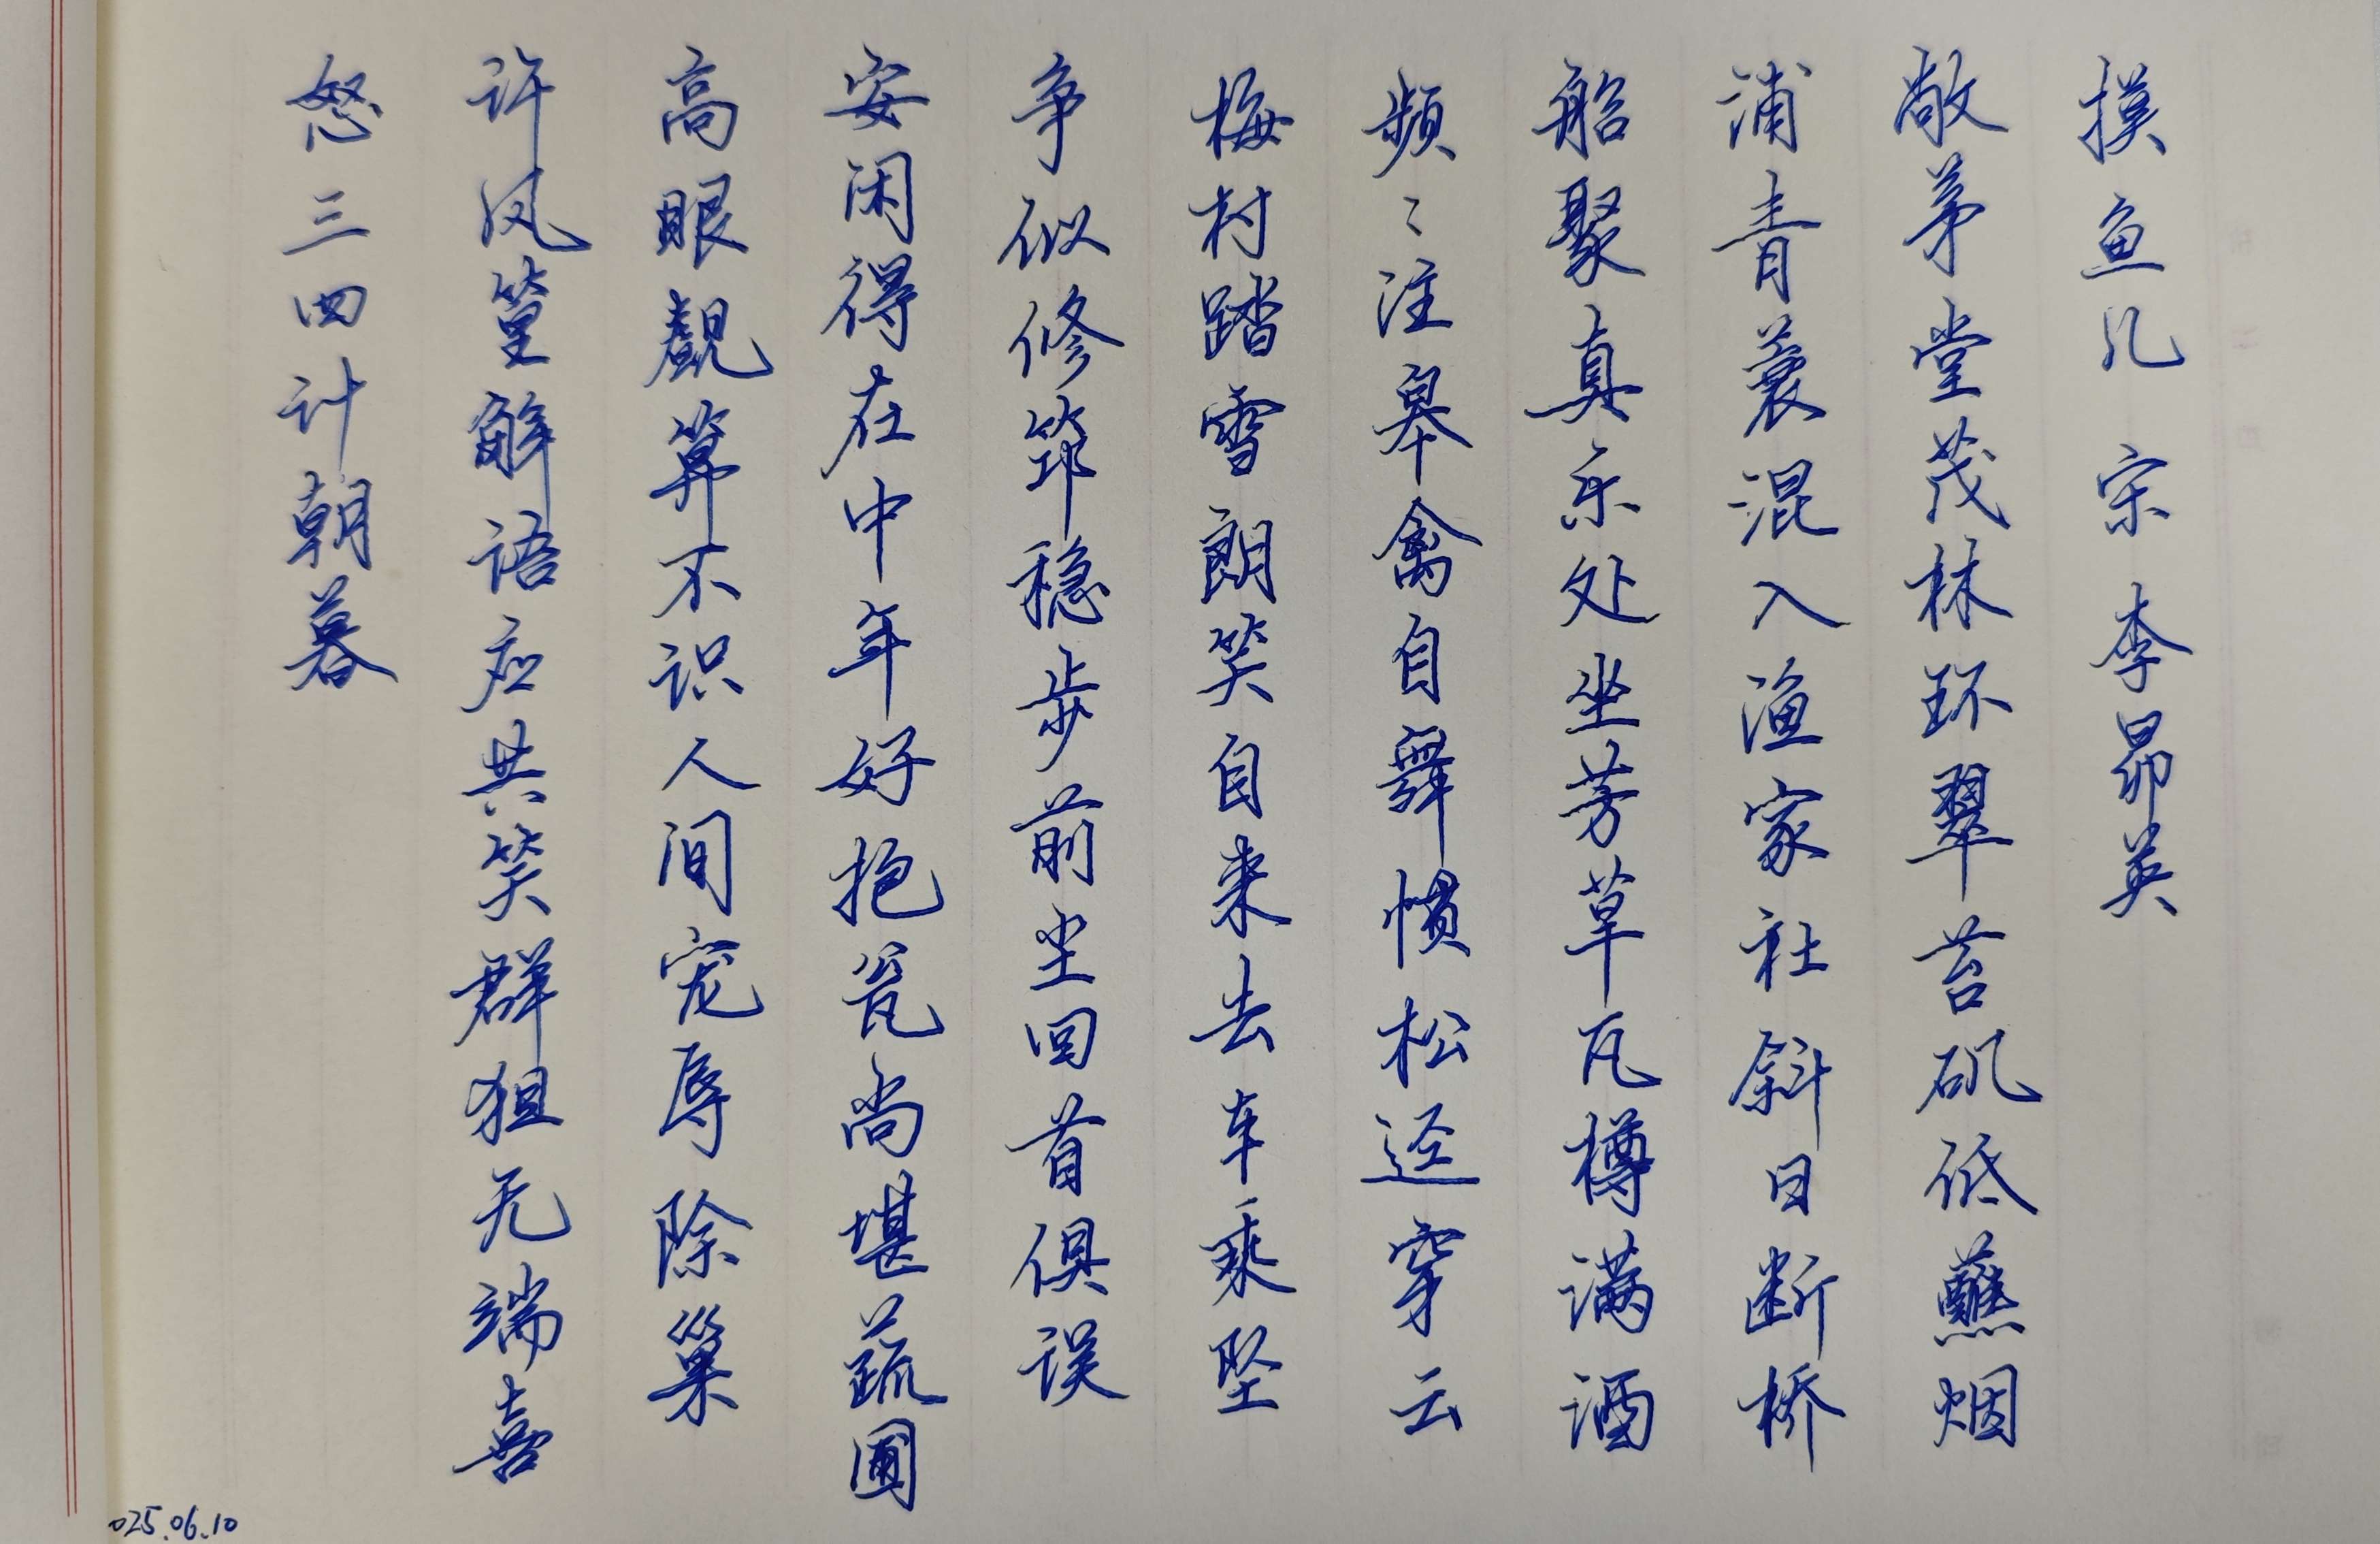 摸鱼儿 宋 李昴英
敞茅堂茂林环翠苔矶低蘸烟
浦青蓑混入渔家社斜日断桥
船聚真乐处坐芳草瓦樽满酒
频〻注皋禽自舞惯松迳穿云
梅村踏雪朗笑自来去车乘坠
争似修筇稳步前尘回首俱误
安闲得在中年好抱瓮尚堪蔬圃
高眼觑算不识人间宠辱除巢
许风篁解语应共笑群狙无端喜
怒三四计朝暮
025.06.10